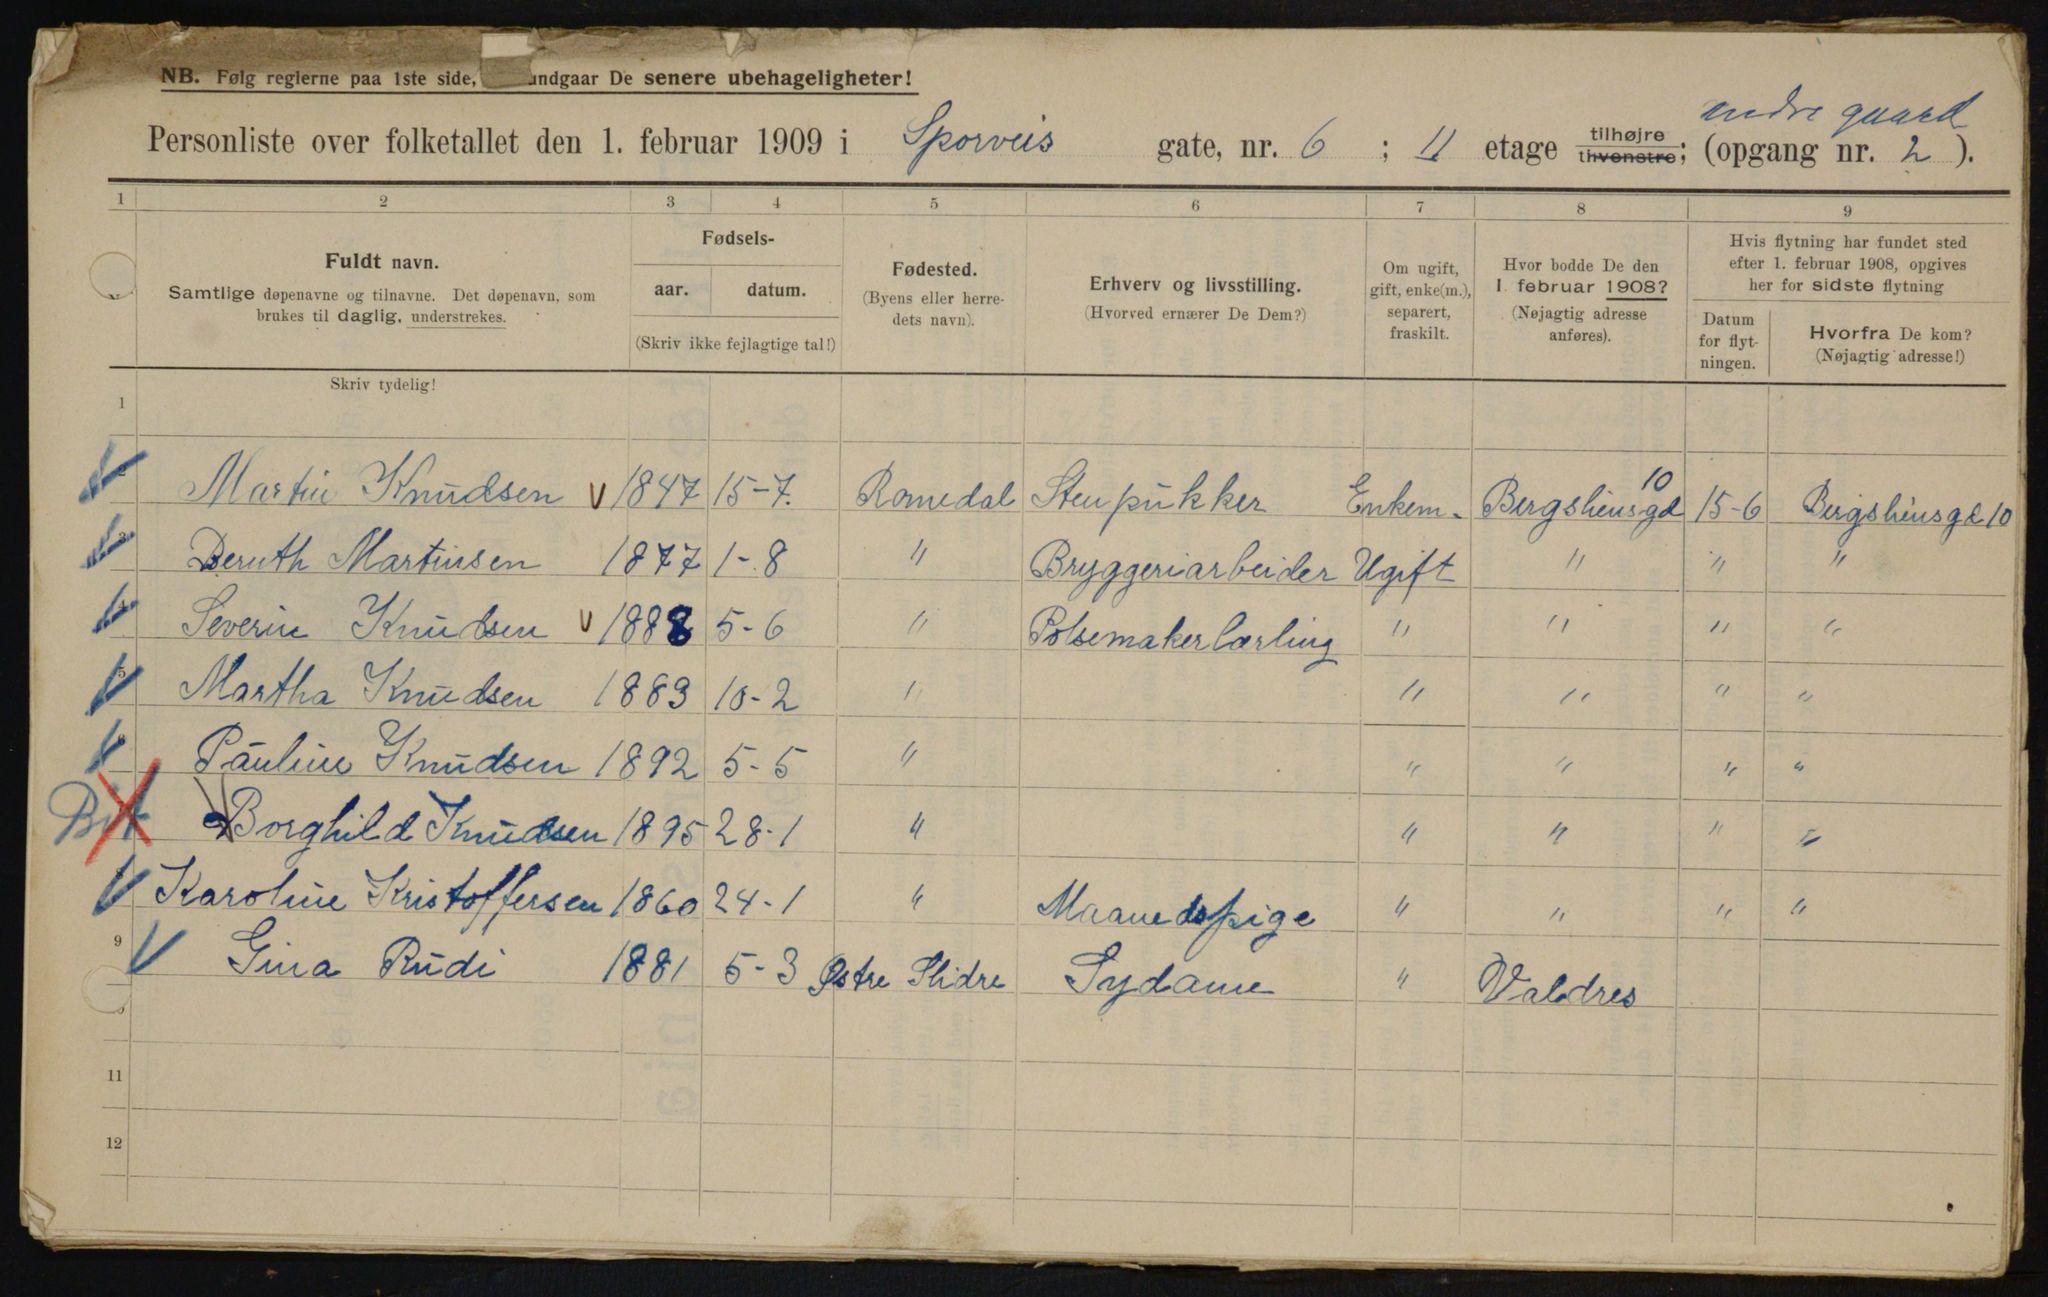 NB. Følg reglerne paa 1ste side, undgaar De senere ubehageligheter!
indre gaard
Personliste over folketallet den 1. februar 1909 i Sporveis gate, nr. 6 ; II etage tilhøjre thvenstre; (opgang nr. 2 ).
1 2 3 4 5 6 7 8 9
Fuldt navn.
Samtlige døpenavne og tilnavne. Det døpenavn, som
brukes til daglig, understrekes.
Fødsels-
aar. datum.
(Skriv ikke fejlagtige tal!)
Fødested.
(Byens eller herre-
dets navn).
Erhverv og livsstilling.
(Hvorved ernærer De Dem?)
Om ugift,
gift, enke(m.),
separert,
fraskilt.
Hvor bodde De den
1. februar 1908?
(Nøjagtig adresse
anføres).
Hvis flytning har fundet sted
efter 1. februar 1908, opgives
her for sidste flytning
Datum
for flyt-
ningen.
Hvorfra De kom?
(Nøjagtig adresse!)
Skriv tydelig!
1
2 Martin Knudsen v 1847 15-7. Romedal Stenpukker Enkem. Bergsliensgd 10 15-6 Bergsliensgd 10
3 Beruth Martinsen 1877 1-8 " Bryggeriarbeider Ugift " " "
4 Severin Knudsen v 1888 5-6 " Polsemakerlærling " " " "
5 Martha Knudsen 1883 10-2 " " " " "
6 Pauline Knudsen 1892 5-5 " " " " "
Borghild Knudsen 1895 28-1 " " " " "
Karoline Kristoffersen 1860 24-1 " Maanedspige " " " "
9 Gina Rudi 1881 5-3 Østre Slidre Sydame " Valdres
11
12